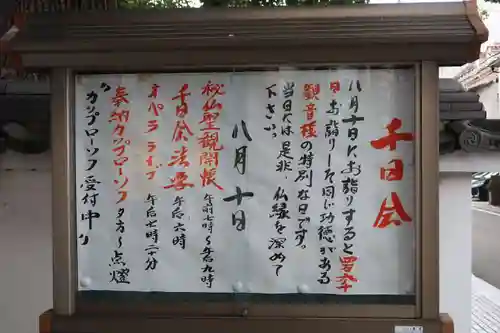 千日会
八月十日にお詣りすると四万六千
日お詣りした同じ功徳がある
観音様の特別な日です。
当日は是非、仏縁を深めて
下さい。
八月十日
秘仏聖観開帳 午前七時〜午后九時
千日会法要 午后六時
オペラライブ 午后七時二十分
奉納カップローソク夕方〜点燈
"カップローソク受付中"